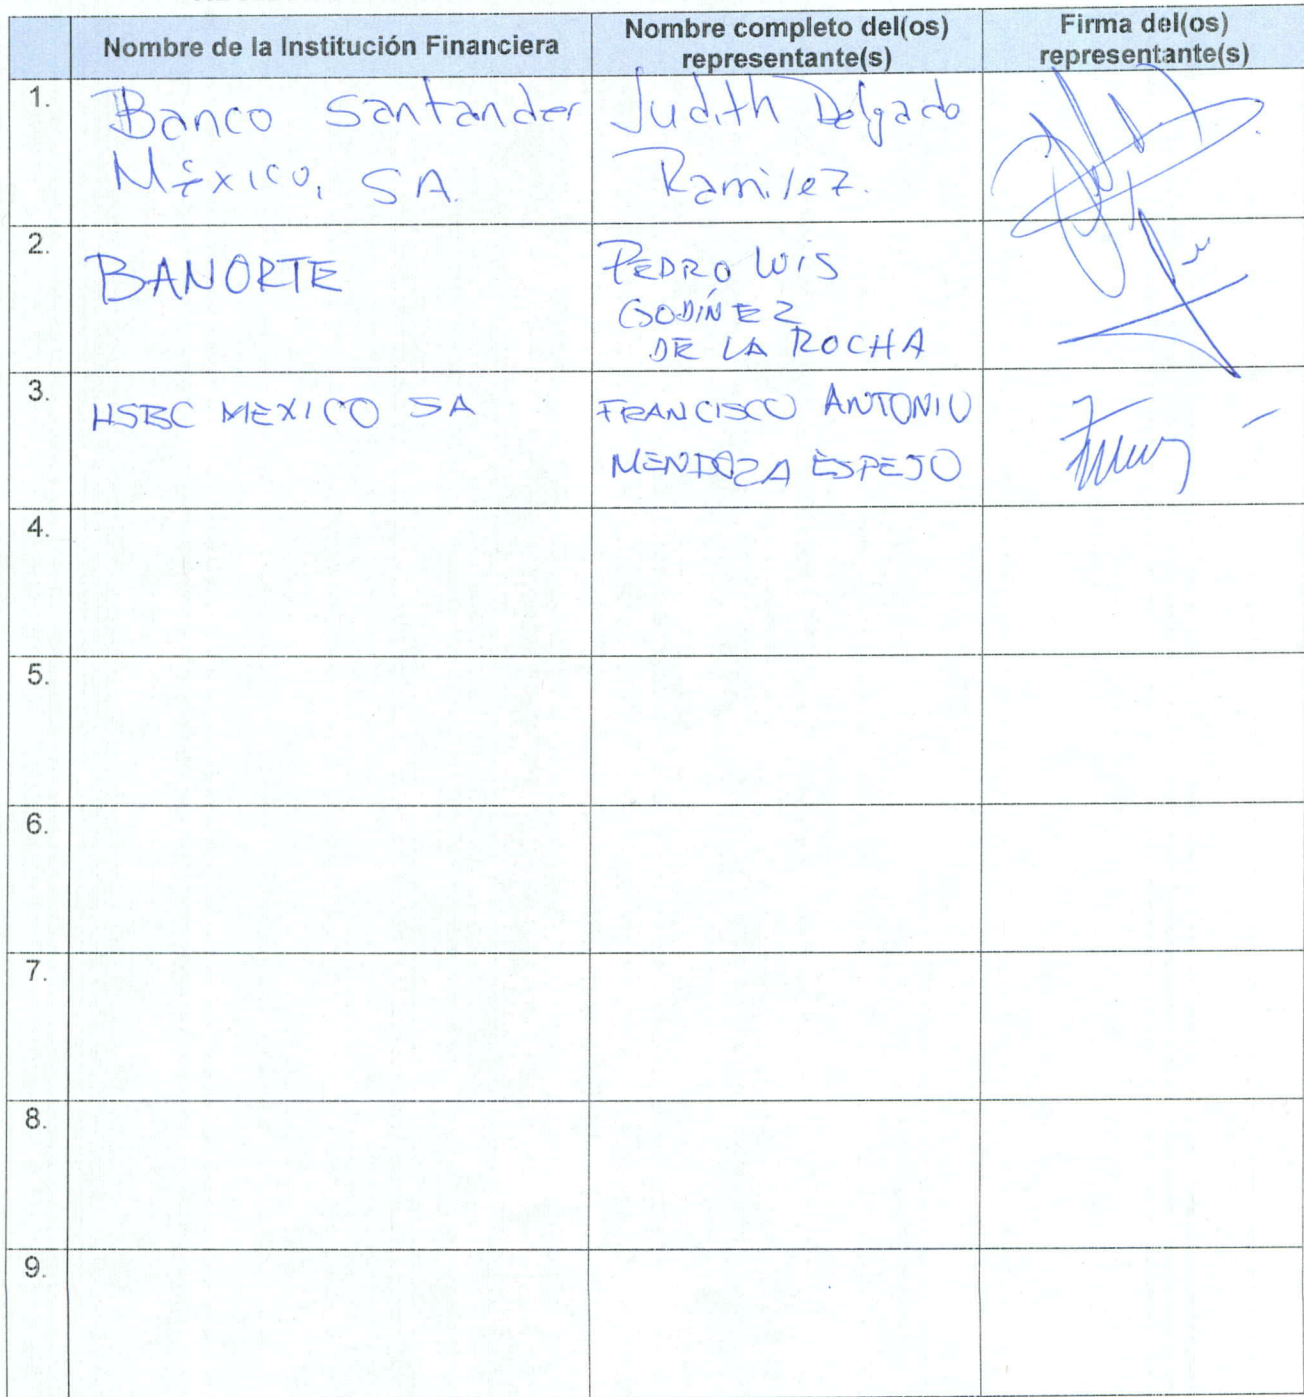 Nombre de la Institución Financiera
Nombre completo del(os)
representante(s)
Firma del(os)
representante(s)
1.
Banco Santander
México, SA.
Judith Delgado
Ramirez.
2.
BANORTE
PEDRO LUIS
GODÍNEZ
DE LA ROCHA
3.
HSBC MEXICO SA
FRANCISCO ANTONIO
MENDOZA ESPEJO
4.
5.
6.
7.
8.
9.